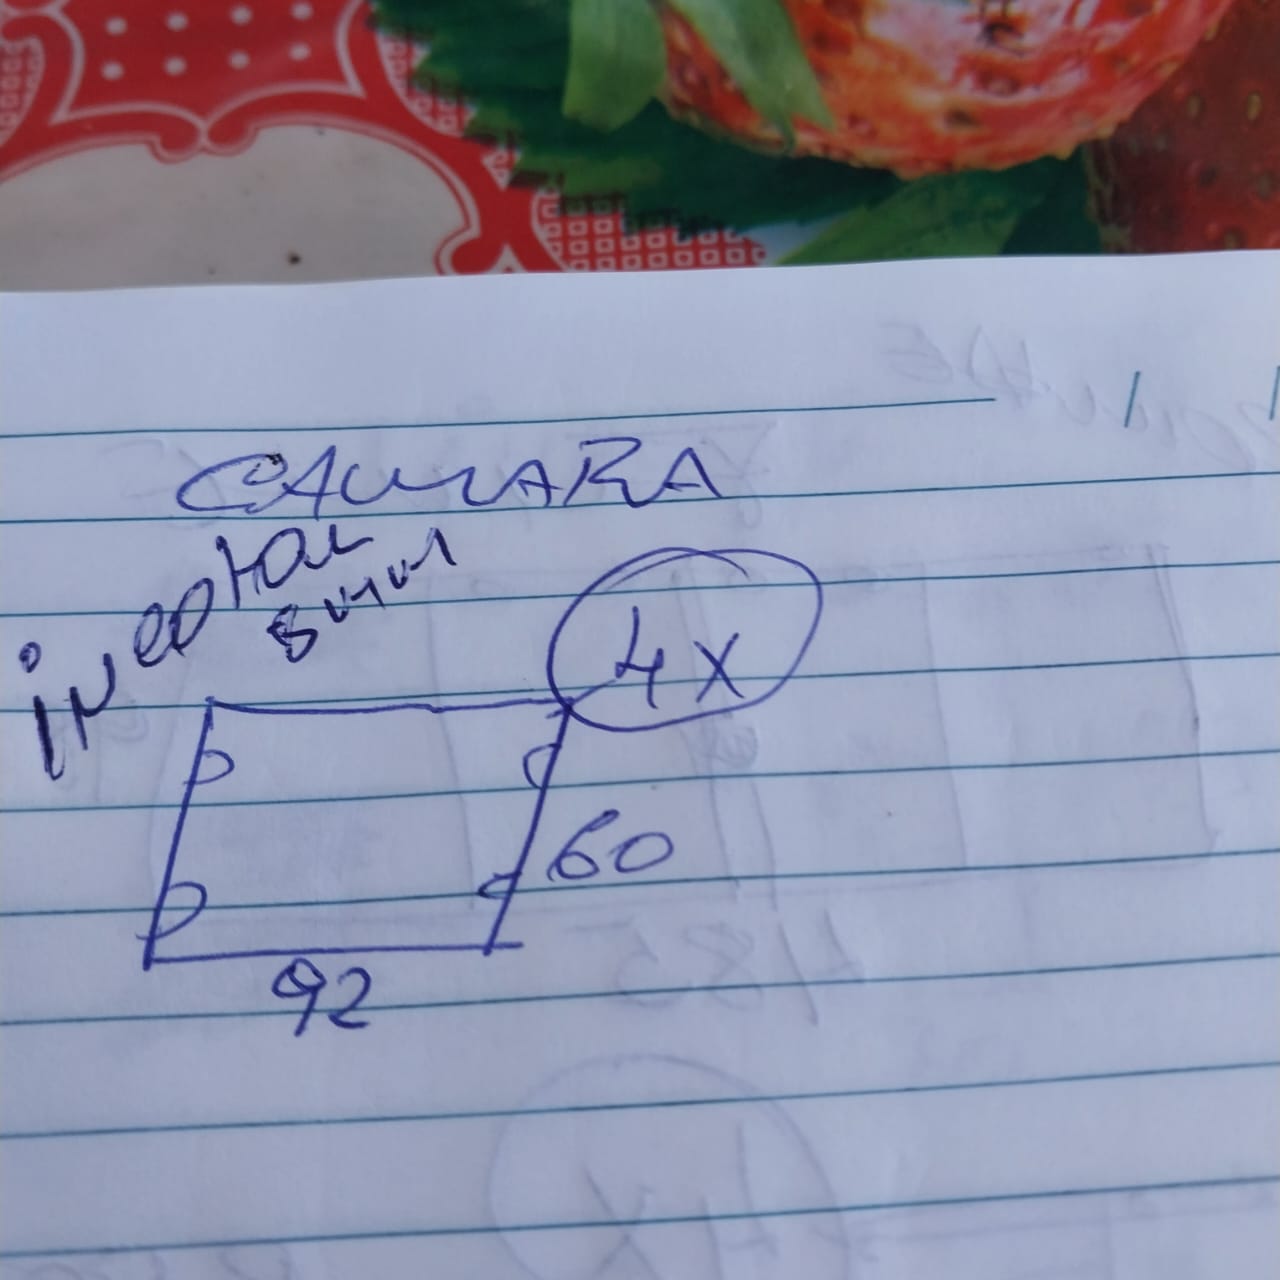 CAMARA
incolor
8mm
4x
60
92